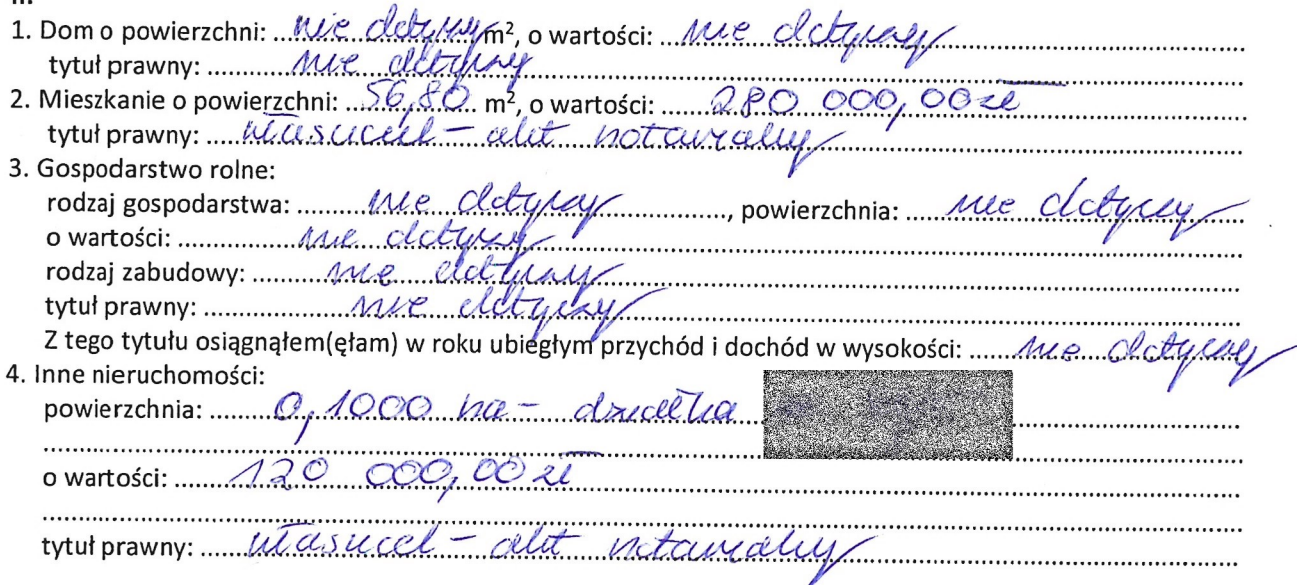 II.
1. Dom o powierzchni: nie dotyczy m², o wartości: nie dotyczy
tytuł prawny: nie dotyczy
2. Mieszkanie o powierzchni: 56,80 m², o wartości: 280 000,00 zł
tytuł prawny: właściciel - akt notarialny
3. Gospodarstwo rolne:
rodzaj gospodarstwa: nie dotyczy, powierzchnia: nie dotyczy
o wartości: nie dotyczy
rodzaj zabudowy: nie dotyczy
tytuł prawny: nie dotyczy
Z tego tytułu osiągnąłem(ęłam) w roku ubiegłym przychód i dochód w wysokości: nie dotyczy
4. Inne nieruchomości:
powierzchnia: 0,1000 ha - działka
o wartości: 120 000,00 zł
tytuł prawny: właściciel - akt notarialny